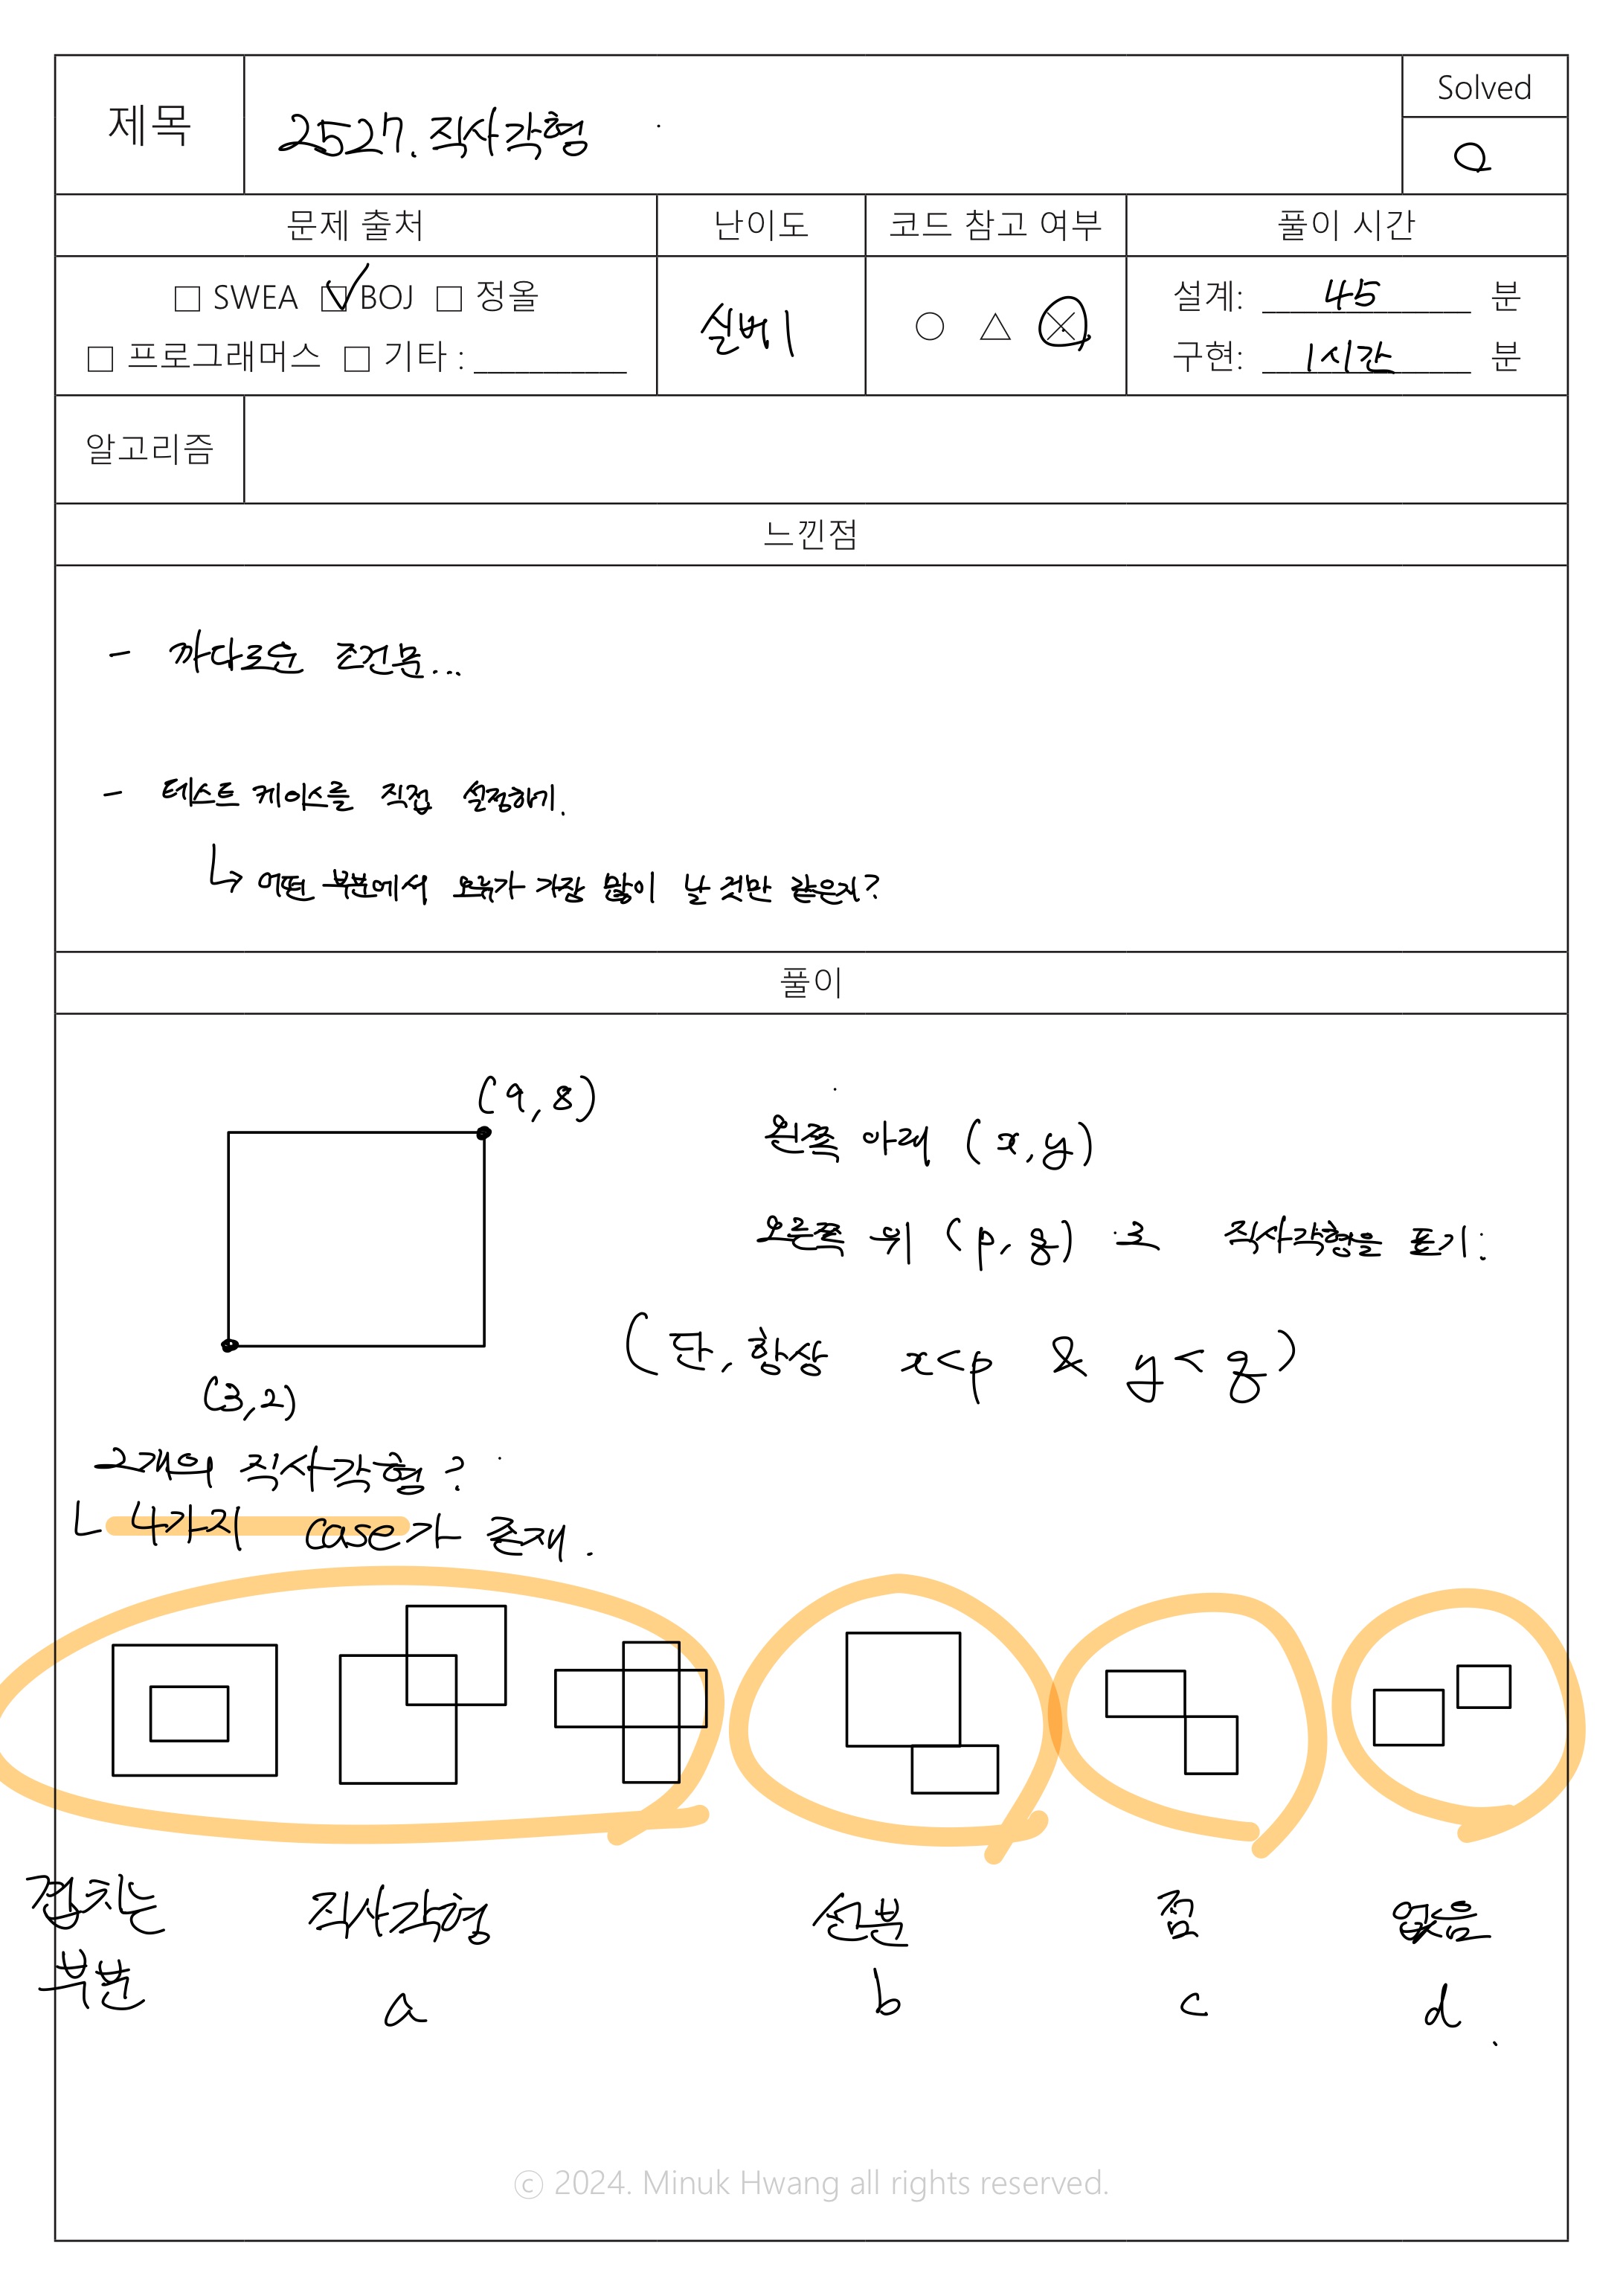 제목
2527. 직사각형
Solved
O
문제 출처
난이도
코드 참고 여부
풀이 시간
□ SWEA ☑ BOJ □ 정올
□ 프로그래머스 □ 기타 : __________
실버 1
○ △ ⓧ
설계: 45 분
구현: 1시간 분
알고리즘
느낀점
- 까다로운 조건문...
- 테스트 케이스를 직접 설정하기.
↳ 어떤 부분에서 오류가 가장 많이 날 것만 같은지?
풀이
(9, 8)
(3, 2)
왼쪽 아래 (x, y)
오른쪽 위 (p, q) 로 직사각형을 표기.
(단, 항상 x<p & y<q)
2개의 직사각형?
↳ 4가지 case가 존재.
겹치는 부분
직사각형 선분 점 없음
a b c d
© 2024. Minuk Hwang all rights reserved.